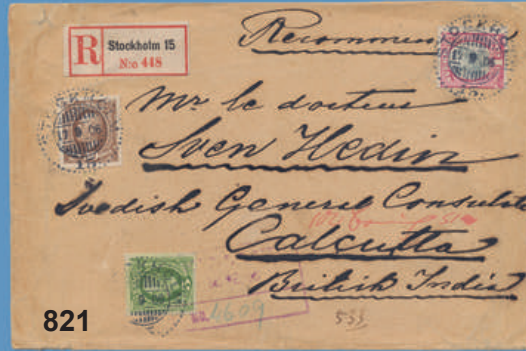 R Stockholm 15
N:o 448
Mr le docteur
Sven Hedin
Swedish General Consulate
Calcutta
British India
No. 4609
533
821